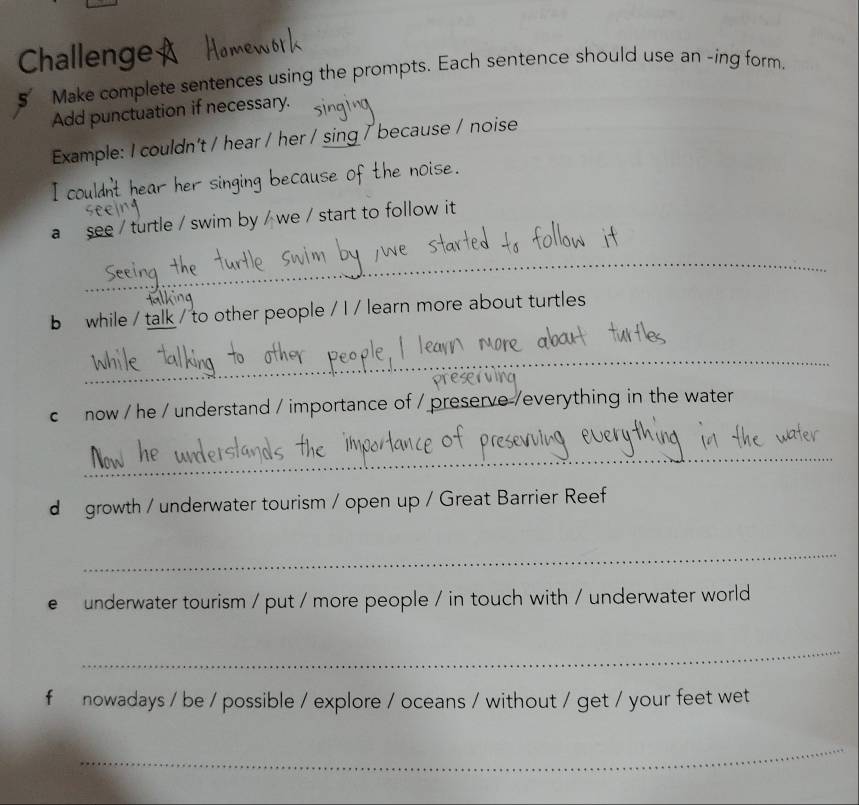 Challenge ☆ Homework
5 Make complete sentences using the prompts. Each sentence should use an -ing form.
Add punctuation if necessary.
singing
Example: I couldn't / hear / her / sing / because / noise
I couldn't hear her singing because of the noise.
seeing
a see / turtle / swim by / we / start to follow it
Seeing the turtle swim by, we started to follow it
talking
b while / talk / to other people / I / learn more about turtles
While talking to other people, I learn more about turtles
preserving
c now / he / understand / importance of / preserve / everything in the water
Now he understands the importance of preserving everything in the water
d growth / underwater tourism / open up / Great Barrier Reef
e underwater tourism / put / more people / in touch with / underwater world
f nowadays / be / possible / explore / oceans / without / get / your feet wet